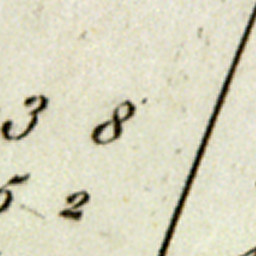 3 8
5 2